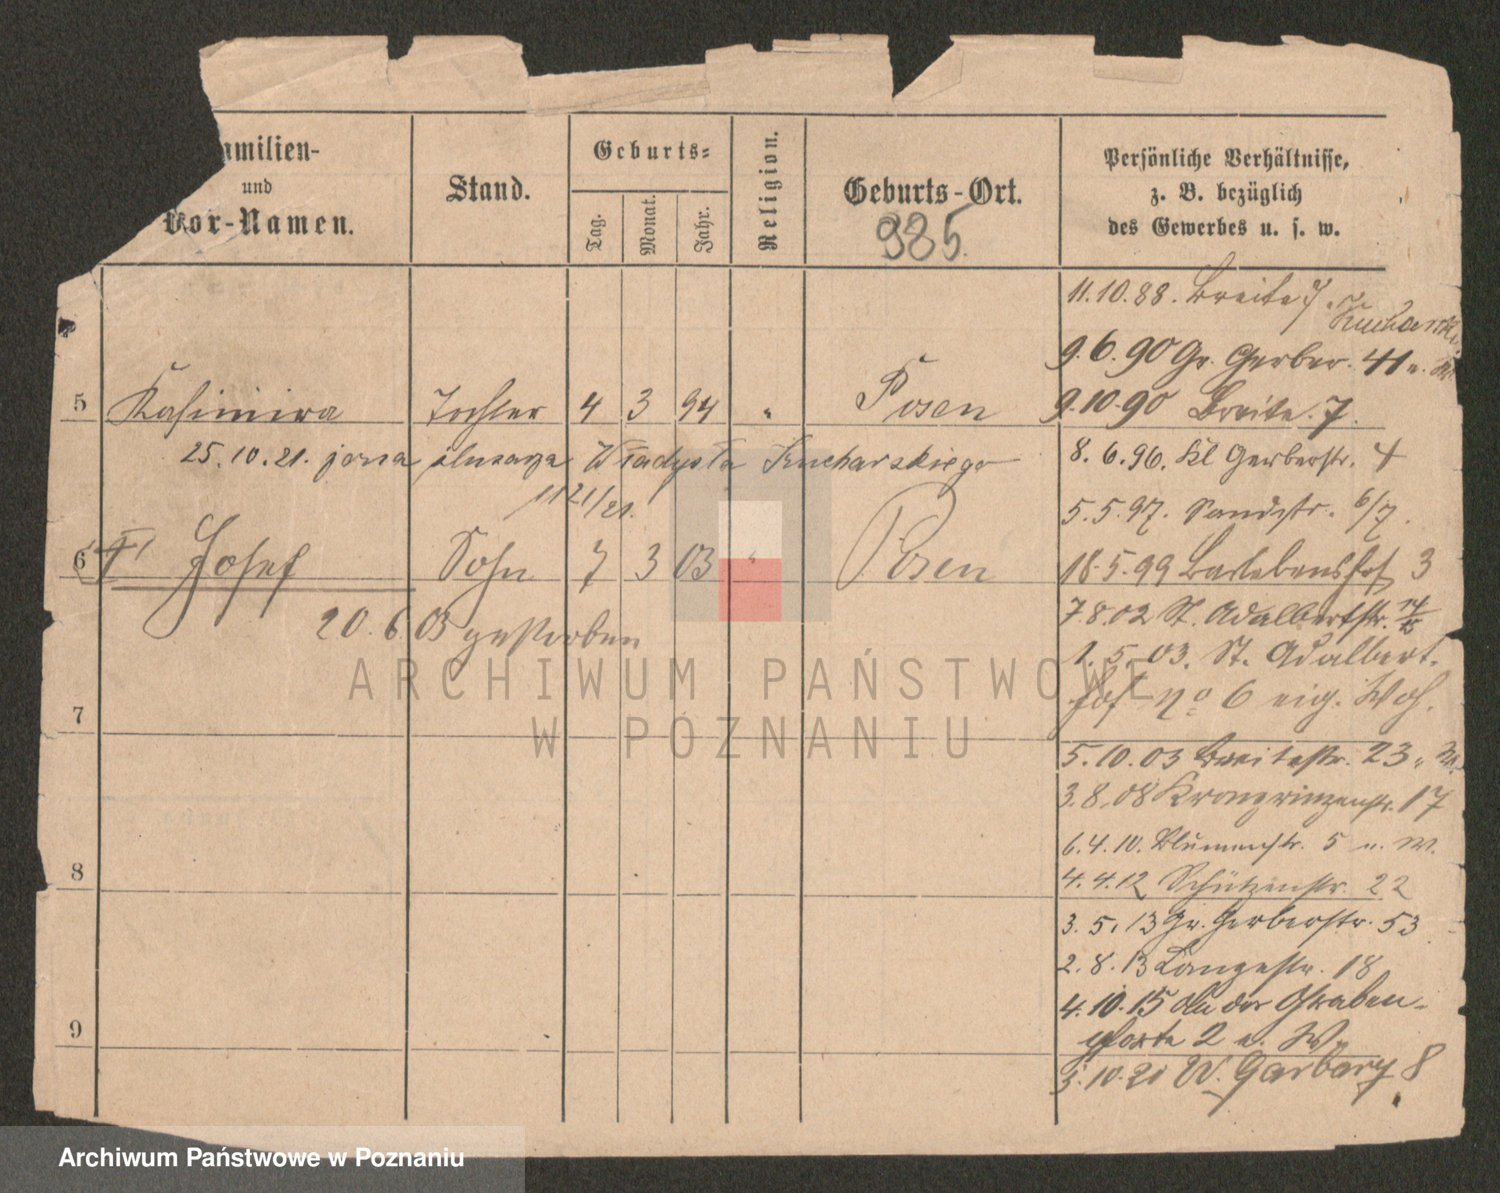 amilien-
und
Vor-Namen.
Stand.
Geburts=
Tag.
Monat.
Jahr.
Religion.
Geburts-Ort.
985.
Persönliche Verhältnisse,
z. B. bezüglich
des Gewerbes u. s. w.
11.10.88. Breite 7.
Kucharski
9.6.90 Gr. Gerber. 41
5 Kasimira Tochter 4 3 94 " Posen
9.10.90 Breite. 7.
25.10.21. żona ślusarza Władysła Kucharskiego
1121/21.
8.6.96. Kl Gerberstr. 4
5.5.97. Sandstr. 6/7.
6 Josef Sohn 7 3 03 " Posen
18.5.99 Barlebenshof 3
20.6.03 gestorben
7.8.02 St. Adalbertstr.
1.5.03. St. Adalbert-
hof No 6 eig. Woh.
7
5.10.03 Breitestr. 23
3.8.08 Kronprinzenstr. 17
6.4.10. Blumenstr. 5 u. W.
8
4.4.12 Schützenstr. 22
3.5.13 Gr. Gerberstr. 53
2.8.13 Langestr. 18
4.10.15 An der Graben-
pforte 2 u. W.
9
10.20 W. Garbary 8
ARCHIWUM PAŃSTWOWE
W POZNANIU
Archiwum Państwowe w Poznaniu